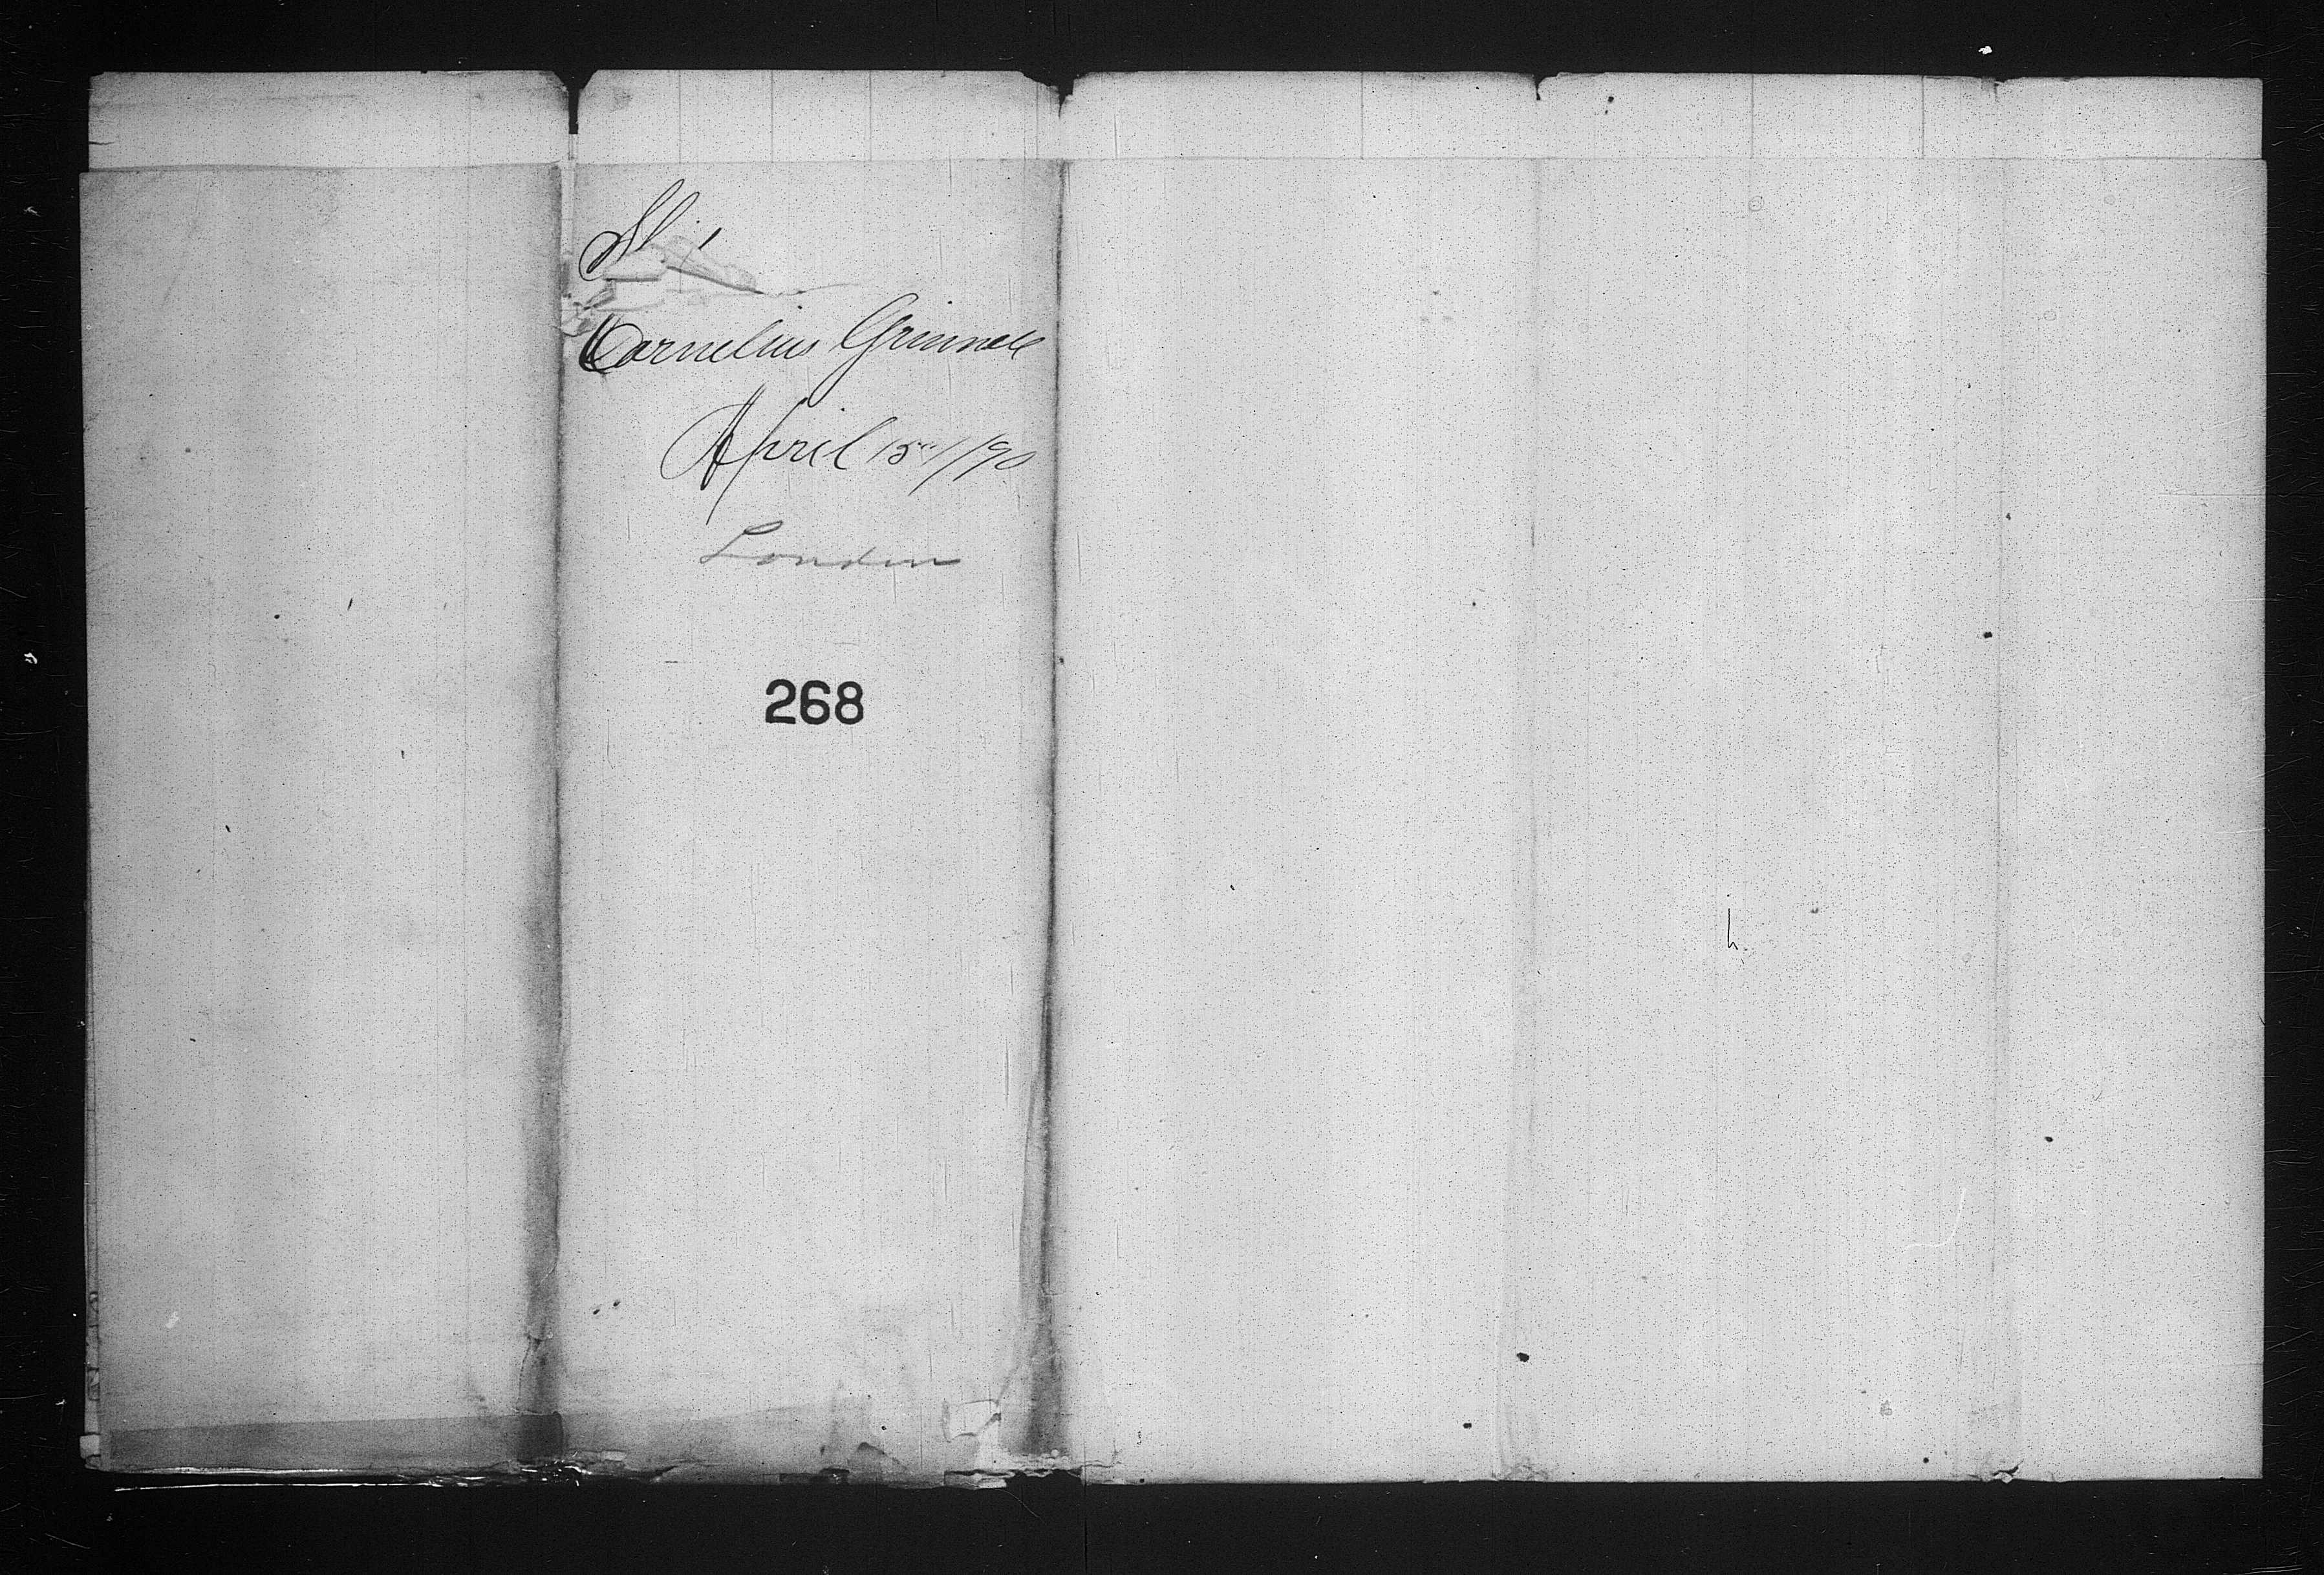 Cornelius Grinnell
April 15th/90
London
268